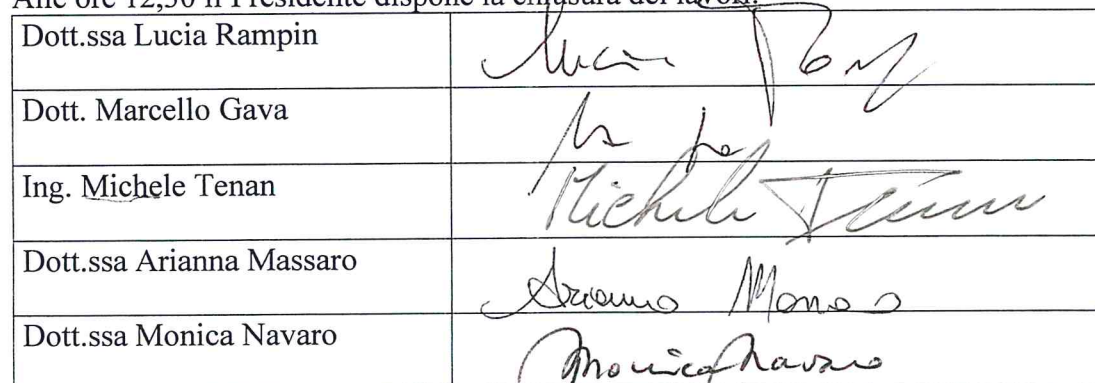 Alle ore 12,30 il Presidente dispone la chiusura dei lavori.
Dott.ssa Lucia Rampin
Dott. Marcello Gava
Ing. Michele Tenan
Michele Tenan
Dott.ssa Arianna Massaro
Arianna Massaro
Dott.ssa Monica Navaro
Monica Navaro